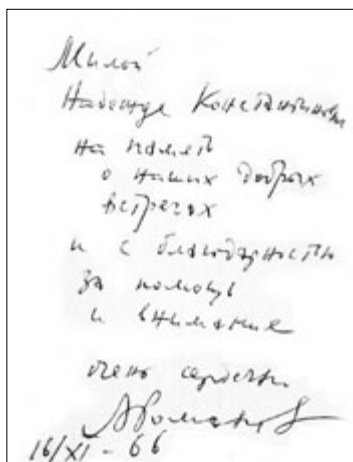 Милой
Надежде Константиновне
на память
о наших добрых
встречах
и с благодарностью
за помощь
и внимание
очень сердечно
А Романов
16/XI - 66